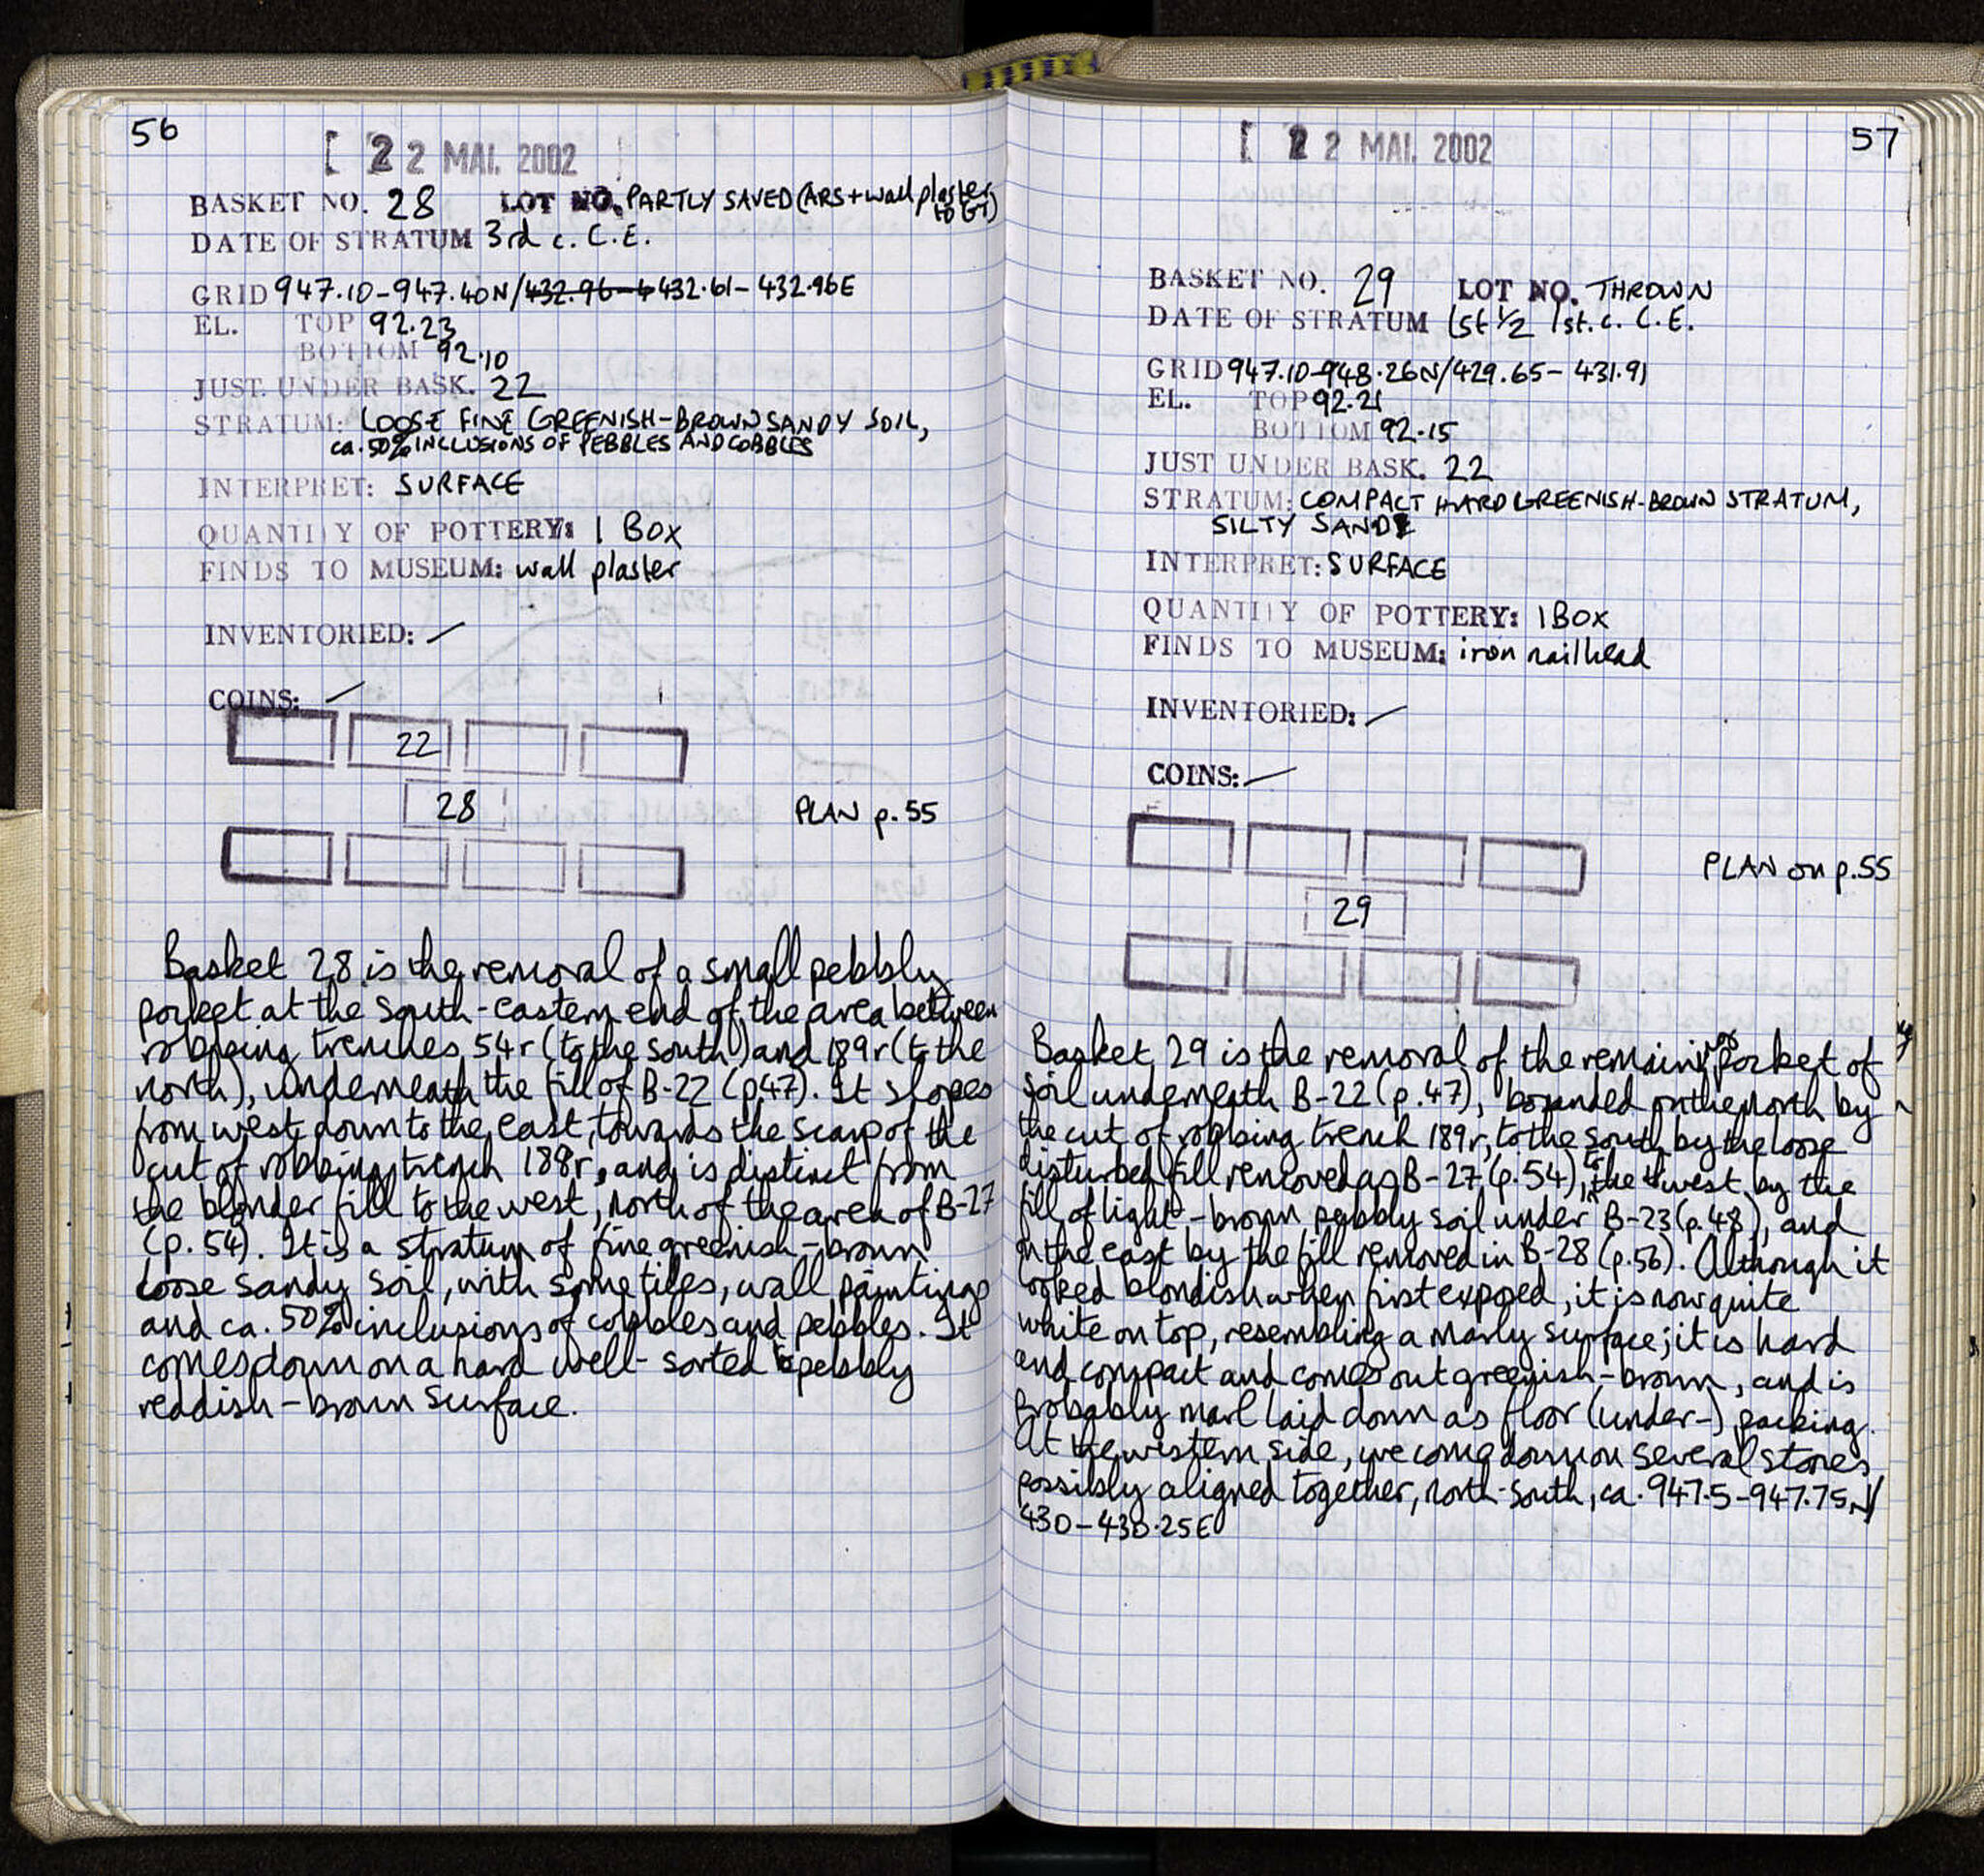 56
[ 22 MAI. 2002
BASKET NO. 28 LOT NO. PARTLY SAVED (ARS + wall plaster
to GT)
DATE OF STRATUM 3rd c. C.E.
GRID 947.10-947.40N/432.96-4 432.61-432.96E
EL. TOP 92.23
BOTTOM 92.10
JUST. UNDER BASK. 22
STRATUM: LOOSE FINE GREENISH-BROWN SANDY SOIL,
ca. 50% INCLUSIONS OF PEBBLES AND COBBLES
INTERPRET: SURFACE
QUANTITY OF POTTERY: 1 BOX
FINDS TO MUSEUM: wall plaster
INVENTORIED: /
COINS: /
22
28
PLAN p.55
Basket 28 is the removal of a small pebbly
pocket at the south-eastern end of the area between
robbing trenches 54r (to the south) and 189r (to the
north), underneath the fill of B-22 (p.47). It slopes
from west down to the east, towards the scarp of the
cut of robbing trench 188r, and is distinct from
the blonder fill to the west, north of the area of B-27
(p. 54). It is a stratum of fine greenish-brown
loose sandy soil, with some tiles, wall paintings
and ca. 50% inclusions of cobbles and pebbles. It
comes down on a hard well-sorted pebbly
reddish-brown surface.
57
[ 22 MAI. 2002
BASKET NO. 29 LOT NO. THROWN
DATE OF STRATUM 1st 1/2 1st. c. C.E.
GRID 947.10-948.26N/429.65-431.91
EL. TOP 92.21
BOTTOM 92.15
JUST UNDER BASK. 22
STRATUM: COMPACT HARD GREENISH-BROWN STRATUM,
SILTY SAND
INTERPRET: SURFACE
QUANTITY OF POTTERY: 1 BOX
FINDS TO MUSEUM: iron nailhead
INVENTORIED: /
COINS: /
29
PLAN on p.55
Basket 29 is the removal of the remaining pocket of
soil underneath B-22 (p.47), bounded on the north by
the cut of robbing trench 189r, to the south by the loose
disturbed fill removed as B-27 (p.54), to the west by the
fill of light-brown pebbly soil under B-23 (p.48), and
on the east by the fill removed in B-28 (p.56). Although it
looked blondish when first exposed, it is now quite
white on top, resembling a marly surface; it is hard
and compact and comes out greenish-brown, and is
probably marl laid down as floor (under-) packing.
At the western side, we come down on several stones
possibly aligned together, north-south, ca. 947.5-947.75N/
430-430.25E